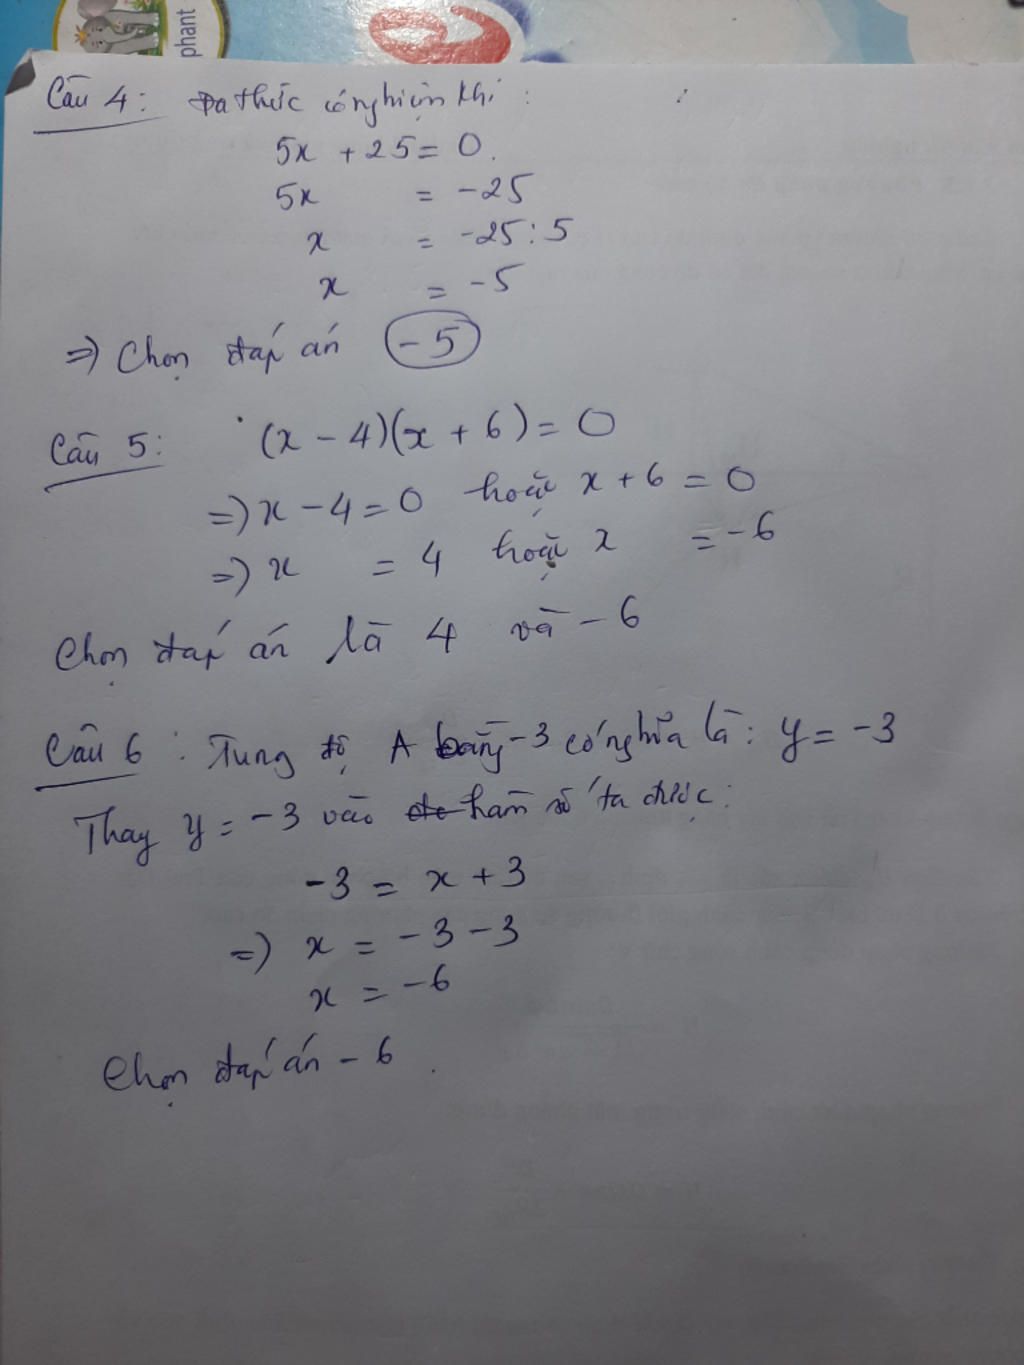 phant
Câu 4: Đa thức có nghiệm khi :
5x + 25 = 0.
5x = -25
x = -25 : 5
x = -5
=> Chọn đáp án -5
Câu 5: (x - 4)(x + 6) = 0
=> x - 4 = 0 hoặc x + 6 = 0
=> x = 4 hoặc x = -6
Chọn đáp án là 4 và -6
Câu 6 : Tung độ A bằng -3 có nghĩa là: y = -3
Thay y = -3 vào hàm số ta được:
-3 = x + 3
=> x = -3 - 3
x = -6
Chọn đáp án -6.